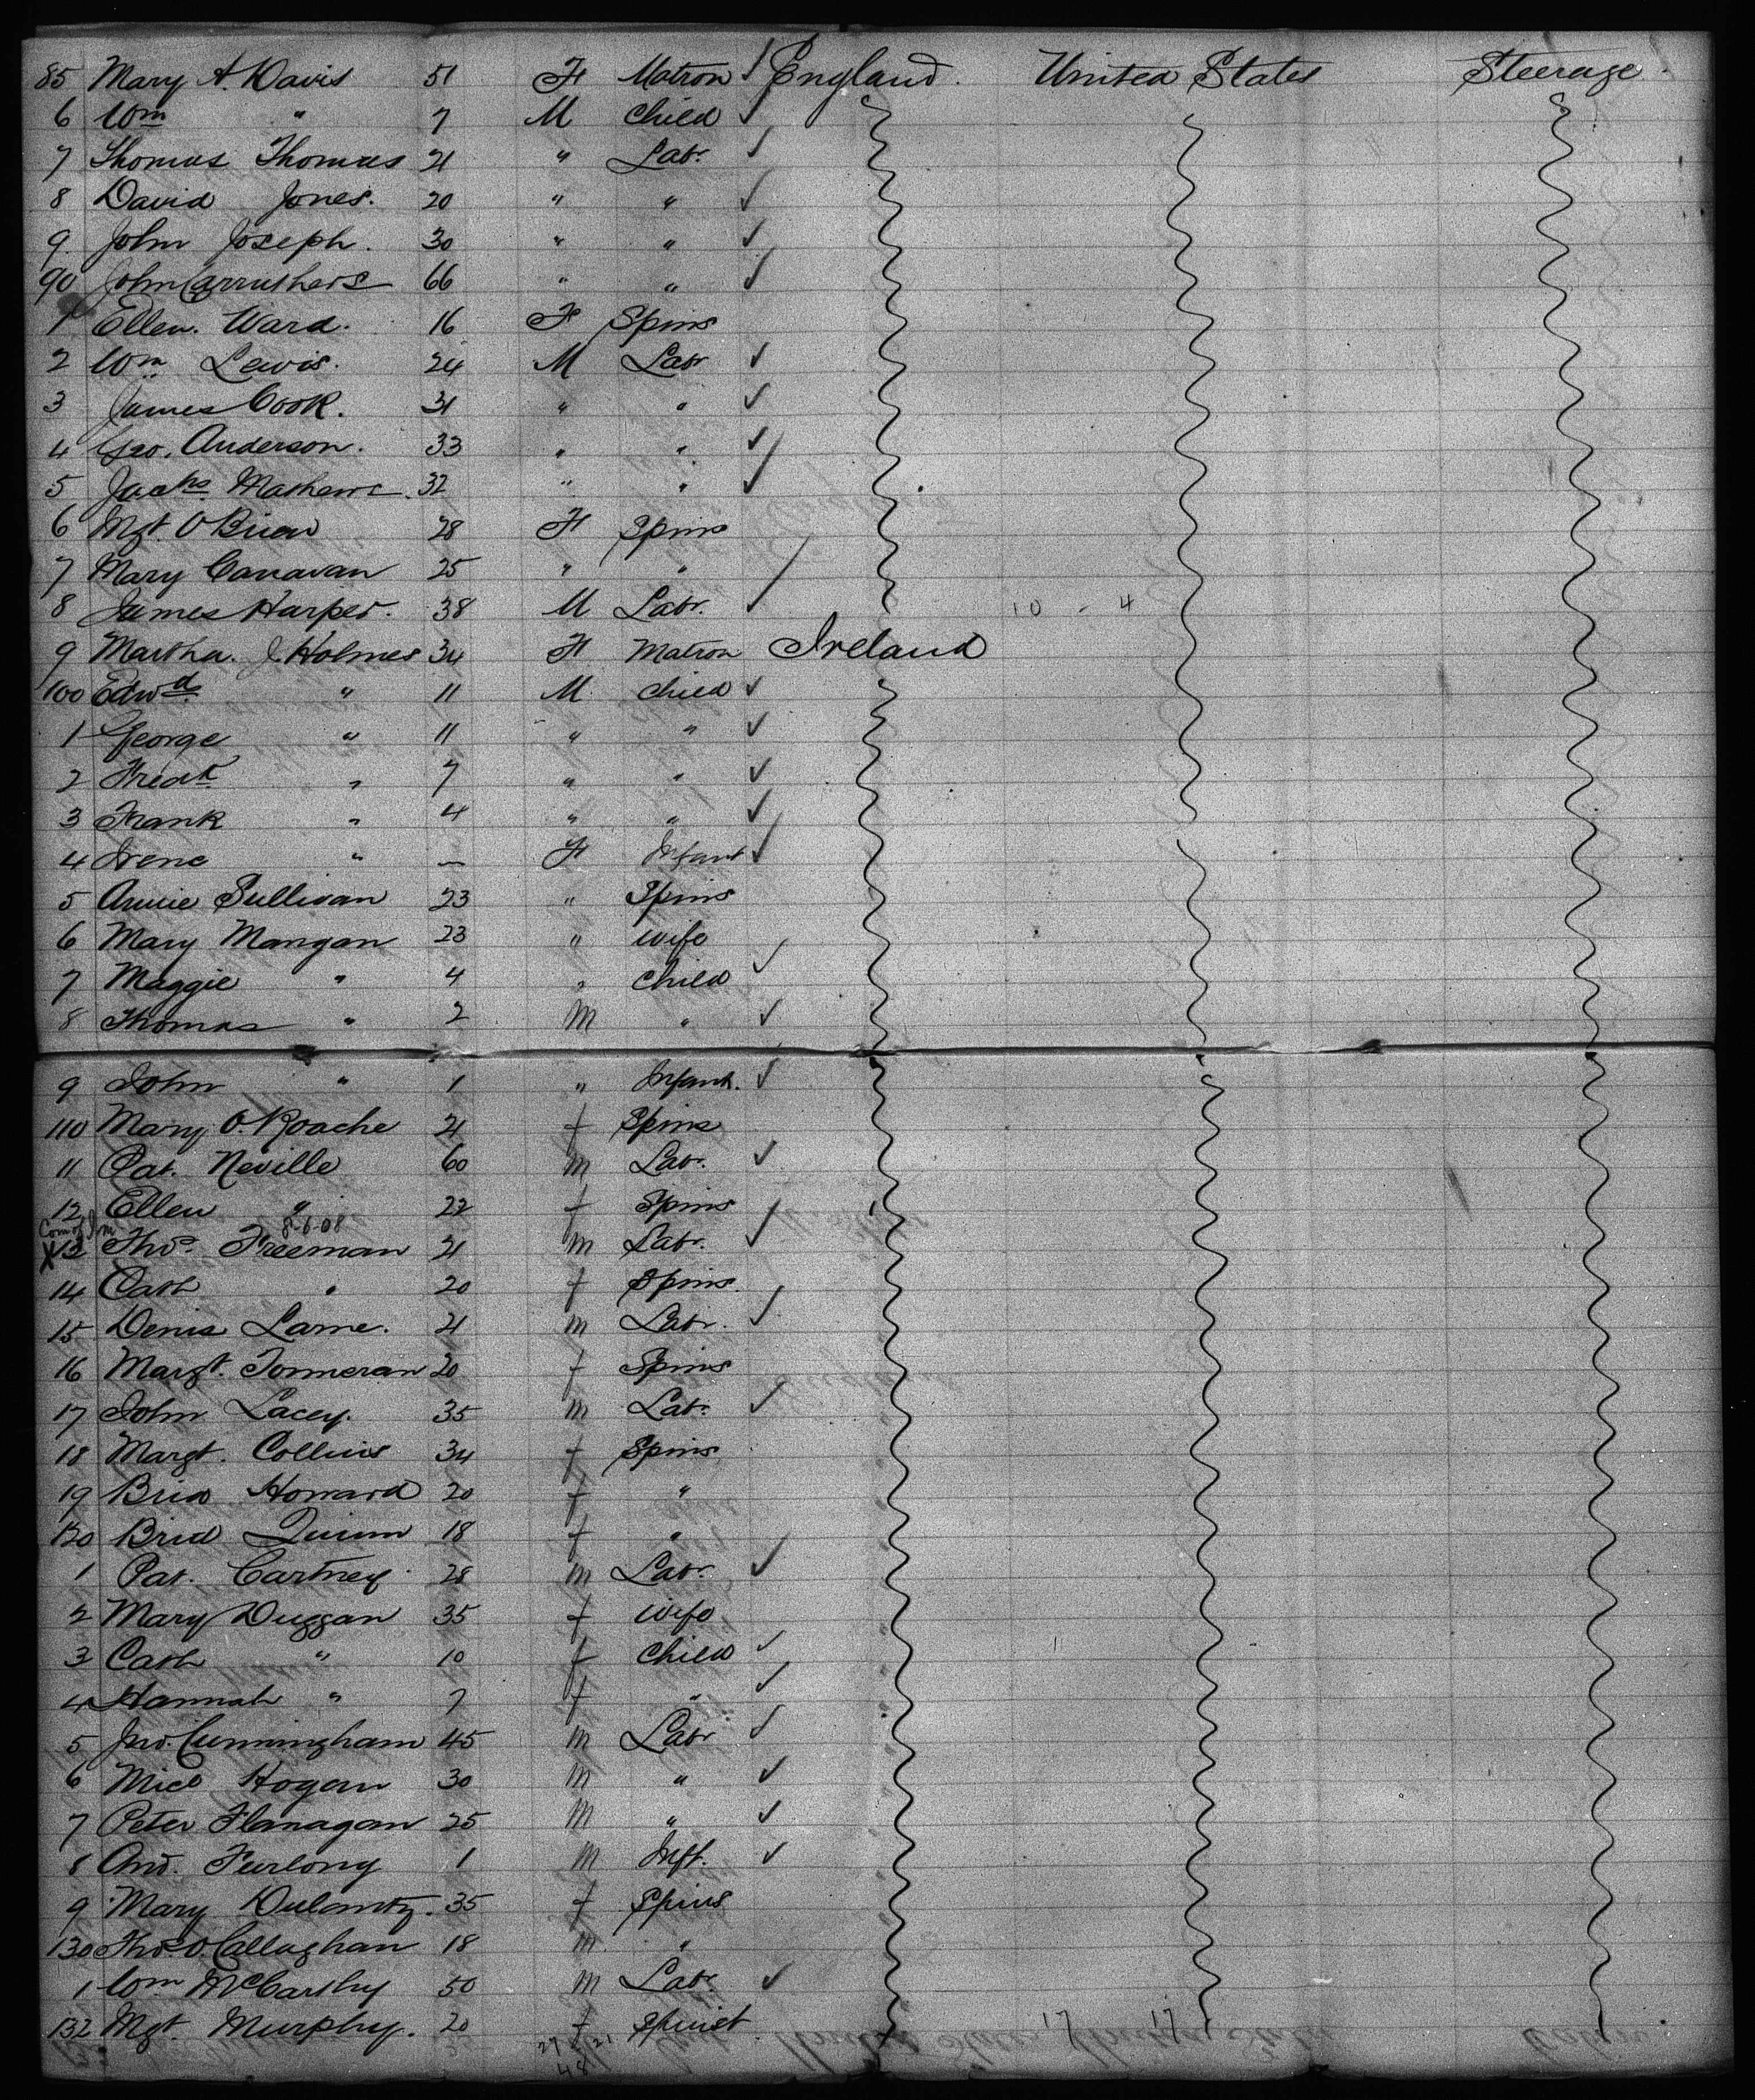 85 Mary A. Davis 51 F Matron England United States Steerage
6 Wm " 7 M Child
7 Thomas Thomas 21 " Labr.
8 David Jones. 20 " "
9. John Joseph. 30 " "
90 John Carruthers 66 " "
1 Ellen. Ward. 16 F Spins
2 Wm Lewis. 24 M Labr
3 James Cook. 31 " "
4 Geo. Anderson. 33 " "
5 Mathews. 32 " "
6 Mgt. O'Brien 28 F Spins
7 Mary Canavan 25 " "
8 James Harper. 38 M Labr. 10 - 4
9 Martha. J. Holmes 34 F Matron Ireland
100 Edwd " 11 M. Child
1 George " 11 " "
2 Fredk " 7 " "
3 Frank " 4 " "
4 Irene " — F Infant
5 Annie Sullivan 23 " Spins
6 Mary Mangan 23 " Wife
7 Maggie " 4 " Child
8 Thomas " 2 M "
9 John " 1 " Infant.
110 Mary O. Roache 21 f Spins
11 Pat. Neville 60 m Labr.
12 Ellen " 22 f Spins
Com of Im 8-6-08
X13 Thos. Freeman 21 m Labr.
14 Cath " 20 f Spins.
15 Denis Larne. 21 m Labr.
16 Margt. Tonneran 20 f Spins
17 John Lacey. 35 m Labr.
18 Margt. Collins 34 f Spins
19 Brid Howard 20 f "
120 Brid Quinn 18 f "
1 Pat. Cartney 28 m Labr.
2 Mary Duggan 35 f Wife
3 Cath " 10 f Child
4 Hannah " 7 f "
5 Jno. Cunningham 45 m Labr
6 Micl Hogan 30 m "
7 Peter Flanagan 25 m "
8 And. Furlong 1 m Inft.
9 Mary Delanty. 35 f Spins
130 Thos. O. Callaghan 18 m. "
1 Wm McCarthy 50 m Labr.
132 Mgt. Murphy. 20 f Spinst 17 17
27 21
48